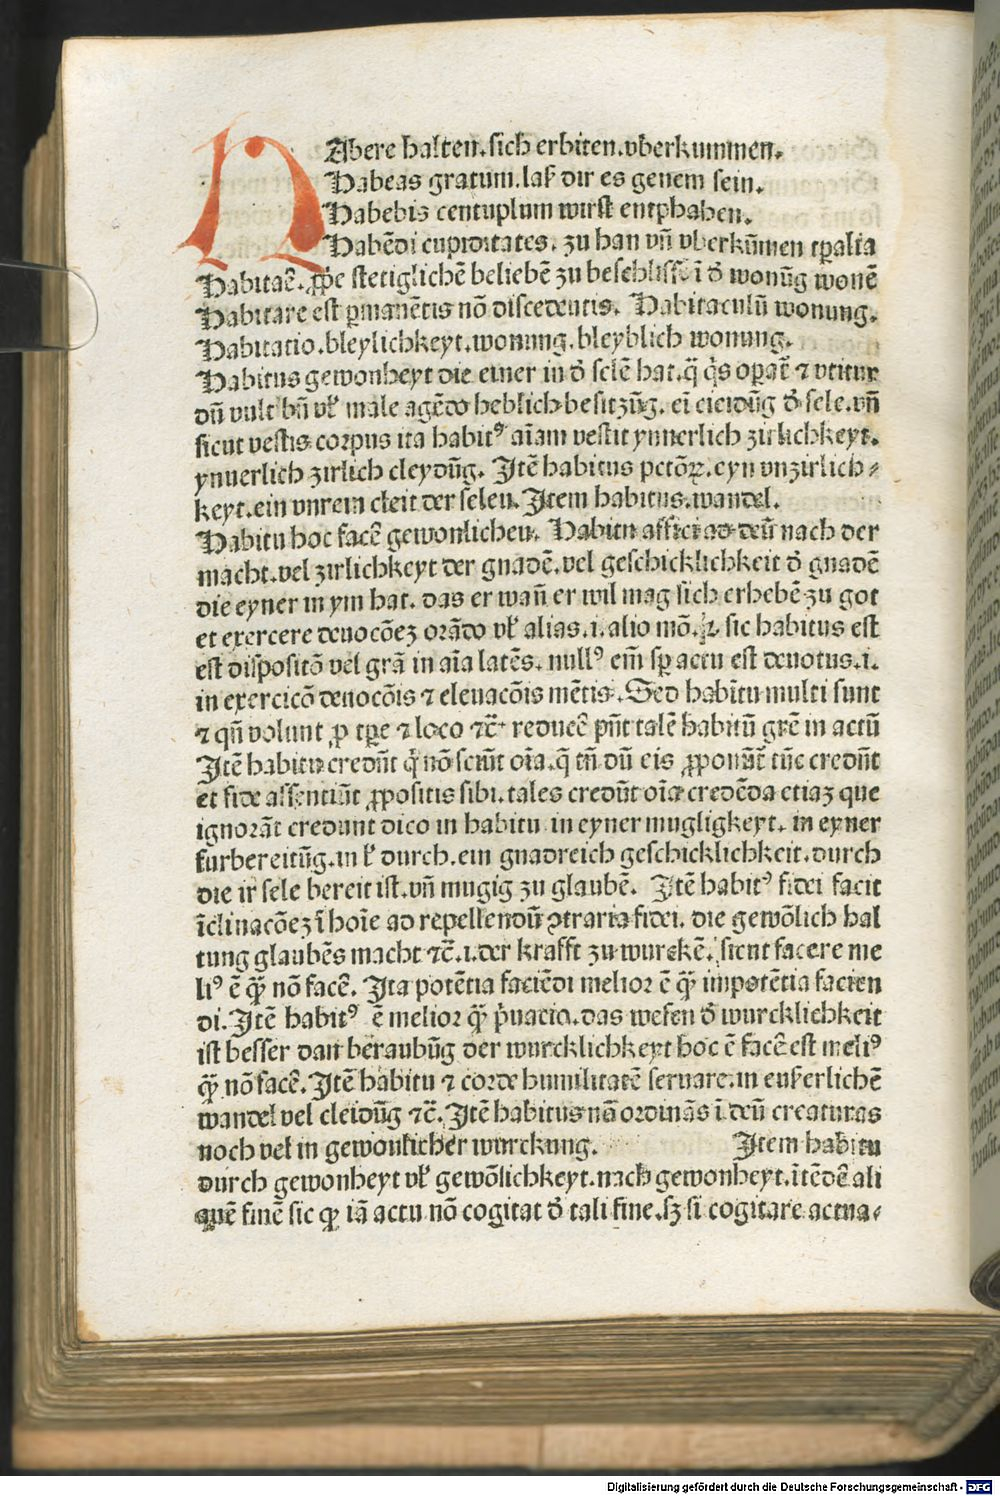 H Abere halten.sich erbiten.vberkummen.
Habeas gratum.laß dir es genem sein.
Habebis centuplum wirst entphahen.
Habēdi cupiditates. zu han vn̄ vberkūmen tꝑalia
Habitāē. ꝓṗe stetiglichē beliebē zu beschlisse ī ď wonūg wonē
Habitare est ꝑmanētis nō discedentis. Habitaculū wonung.
Habitatio.bleylichkeyt.wonung.bleyblich wonung.
Habitus gewonheyt die einer in ď selē hat.q̄ q̇s oꝑat̄ ⁊ vtitur
dū vult bn̄ vł male agēdo heblich besitzūg. eī cleidūg ď sele.vn̄
sicut vestis corpus ita habitꝰ aīam vestit ynnerlich zirlichkeyt.
ynnerlich zirlich cleydūg. Itē habitus pctōꝝ.eyn vnzirlich⸗
keyt.ein vnrein cleit der selen. Item habitus.wandel.
Habitu hoc facē gewonlichen. Habitu affici ad deū nach der
macht.vel zirlichkeyt der gnadē.vel geschicklichkeit ď gnadē
die eyner in ym hat. das er wan̄ er wil mag sich erhebē zu got
et exercere deuocōez orādo vł alias.i.alio mō. ⁊. sic habitus est
est dispositō vel grā in aīa latēs. nullꝰ em̄ sꝑ actu est deuotus.i.
in exercicō deuocōis ⁊ eleuacōis mētis. Sed habitu multi sunt
⁊ qn̄ volunt ꝓ tꝑe ⁊ loco ⁊c̄ reducē pn̄t talē habitū grē in actū
Itē habitu credūt q̇ nō sciūt oīa.q̄ tn̄ dū eis ꝓponūt̄ tūc credūt
et fide assentiūt ꝓpositis sibi.tales credūt oīa credēda etiaz que
ignorāt credunt dico in habitu in eyner mugligkeyt. in eyner
furbereitūg.in ď durch.ein gnadreich geschicklichkeit.durch
die ir sele bereit ist.vn̄ mugig zu glaubē. Itē habitꝰ fidei facit
īclinacōez ī hoīe ad repellendū ꝯtraria fidei. die gewōlich hal
tung glaubēs macht ⁊c̄.i.der krafft zu wurckē. sicut facere me
liꝰ ē q̄ꝫ nō facē. Ita potētia faciēdi melior ē q̄ꝫ impotētia facien
di. Itē habitꝰ ē melior q̄ꝫ p̄uacio.das wesen ď wurcklichkeit
ist besser dan beraubūg der wurcklichkeyt hoc ē facē est meliꝰ
q̄ꝫ nō facē. Itē habitu ⁊ corde humilitatē seruare.in eußerlichē
wandel vel cleidūg ⁊c̄. Itē habitus nō ordinās ī deū creaturas
noch vel in gewonlicher wurckung. Item habitu
durch gewonheyt vł gewōlichkeyt.nach gewonheyt.ītēdē ali
quē finē sic q̄ꝫ iā actu nō cogitat ď tali fine.sꝫ si cogitare actua⸗
Digitalisierung gefördert durch die Deutsche Forschungsgemeinschaft - DFG